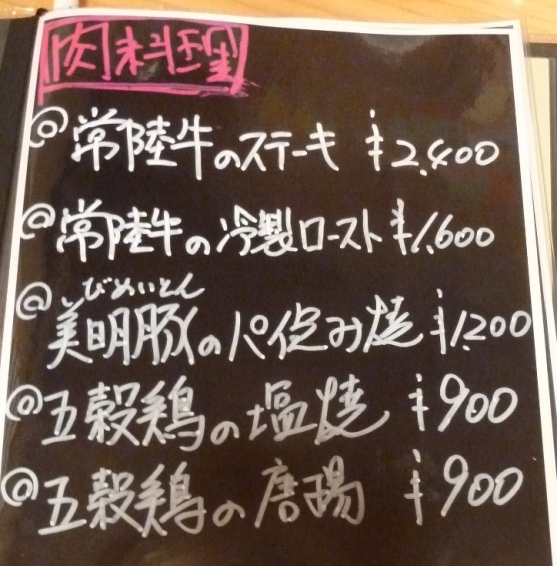 肉料理
@常陸牛のステーキ ¥2,400
@常陸牛の冷製ロースト ¥1,600
びめいとん
@美明豚のパイ包み焼 ¥1,200
@五穀鶏の塩焼 ¥900
@五穀鶏の唐揚 ¥900